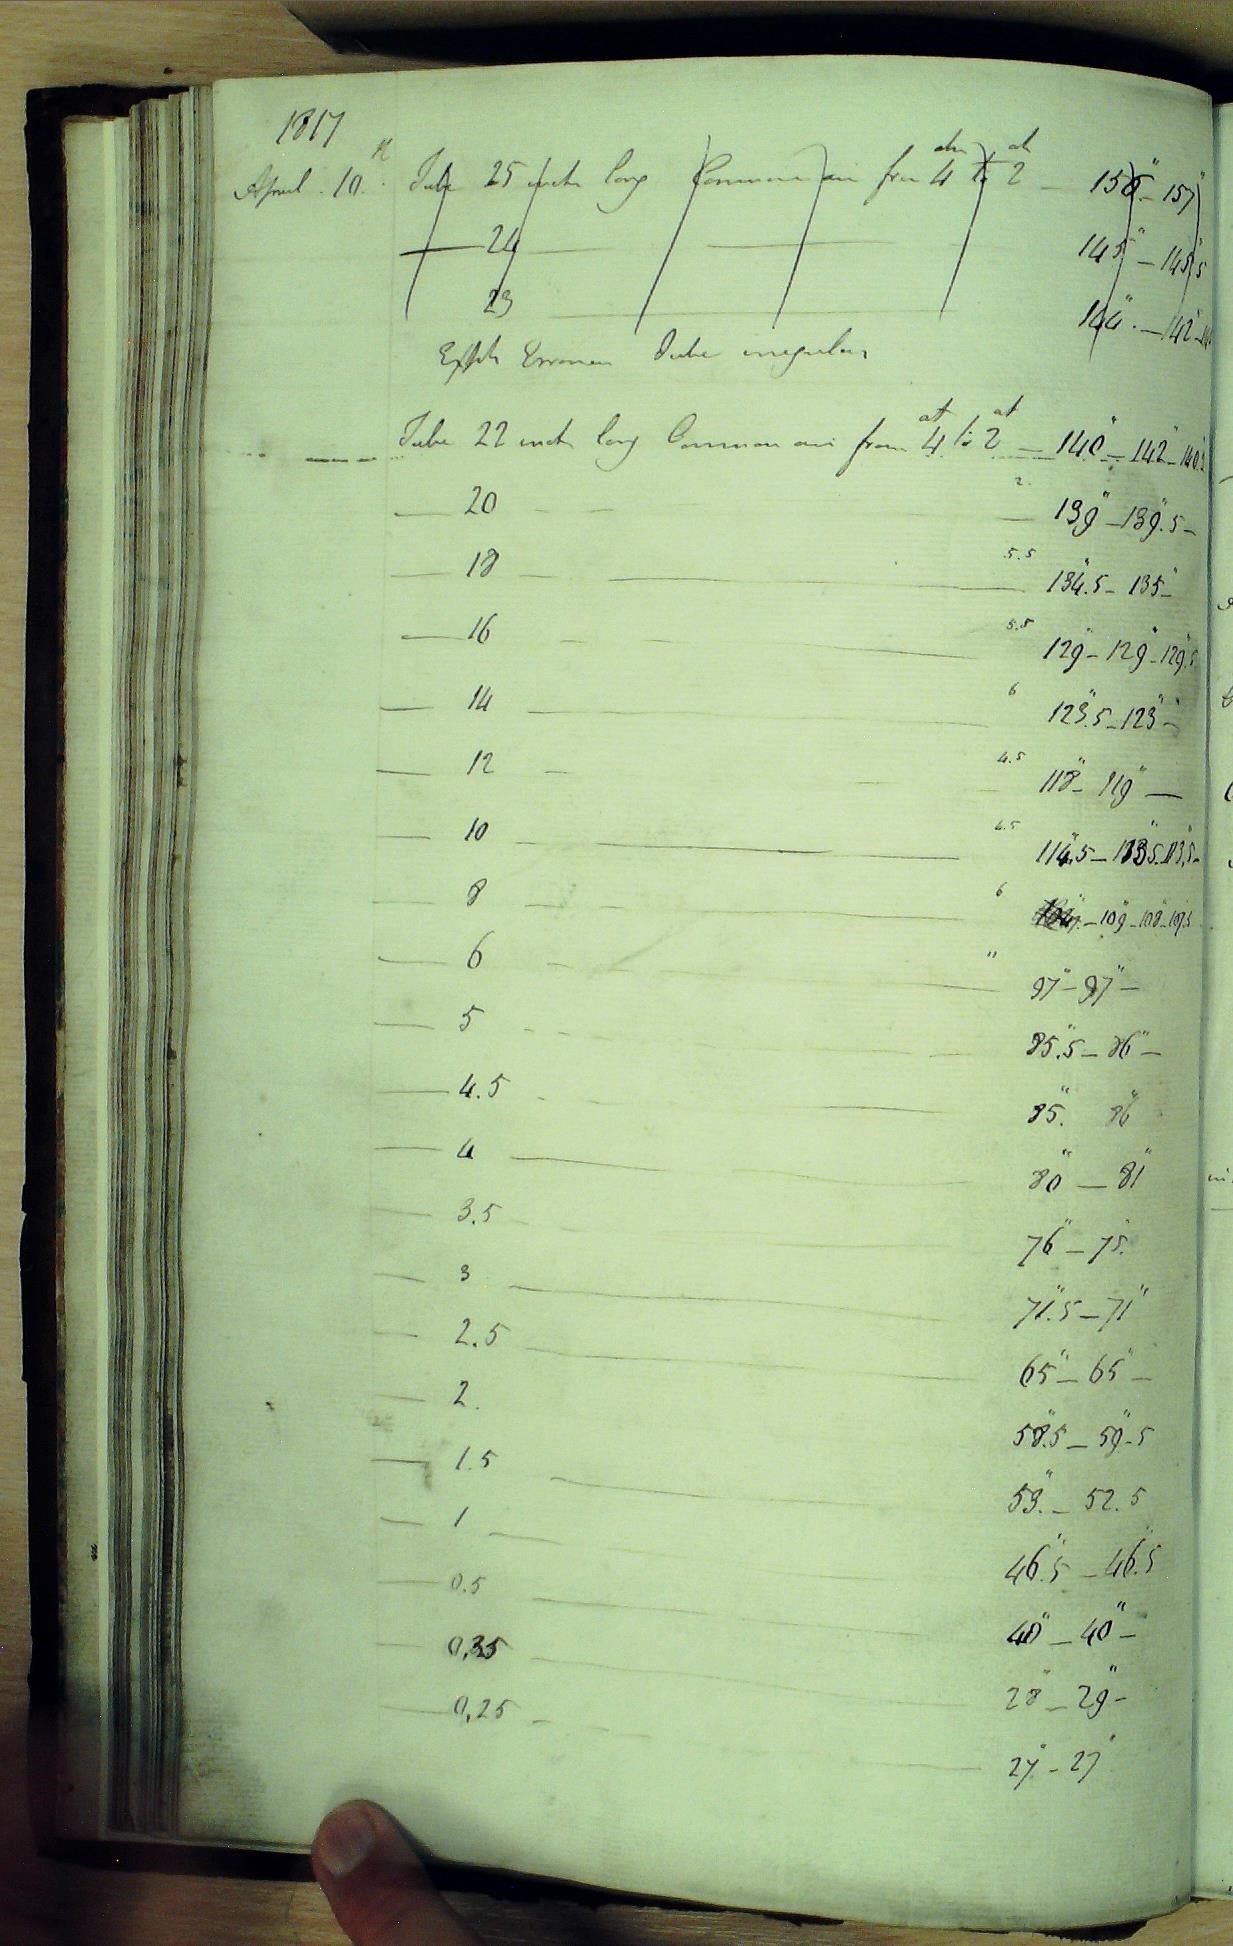 1817
April. 10.th Tube 25 inch long Common air from 4 atm to 2 at — 156" — 157"
— 24 — — 145" — 145".5
23 — 144". — 142"
Tube irregular
Tube 22 inch long Common air from 4 at to 2 at — 140" — 142" — 140".5
— 20 — — 2. 139" — 139".5 —
— 18 — — 5.5 134".5 — 135" —
— 16 — — 5.5 129" — 129" — 129".5
— 14 — — 6 123".5 — 123" —
— 12 — — 4.5 118" — 119" —
— 10 — — 4.5 114".5 — 113".5 — 113".5 —
— 8 — — 6 — 109" — 108" — 107".5
— 6 — — " 97" — 97" —
— 5 — — 85".5 — 86" —
— 4.5 — — 85". 86"
— 4 — — 80" — 81"
— 3.5 — — 76" — 75".
— 3 — — 71".5 — 71"
— 2.5 — — 65" — 65" —
— 2. 58".5 — 59".5
— 1.5 — — 53". — 52.5
— 1 — — 46".5 — 46".5
— 0.5 — — 40" — 40" —
— 0,35 — — 28" — 29" —
— 0,25 — — 27" — 27"